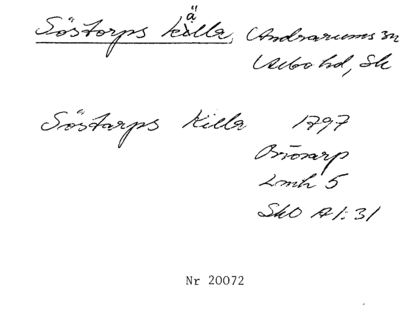 Söstorps källa, Andrarums sn
Albo hd, Sk
Söstarps Killa 1797
Brösarp
Lmh 5
SkO A1:31
Nr 20072